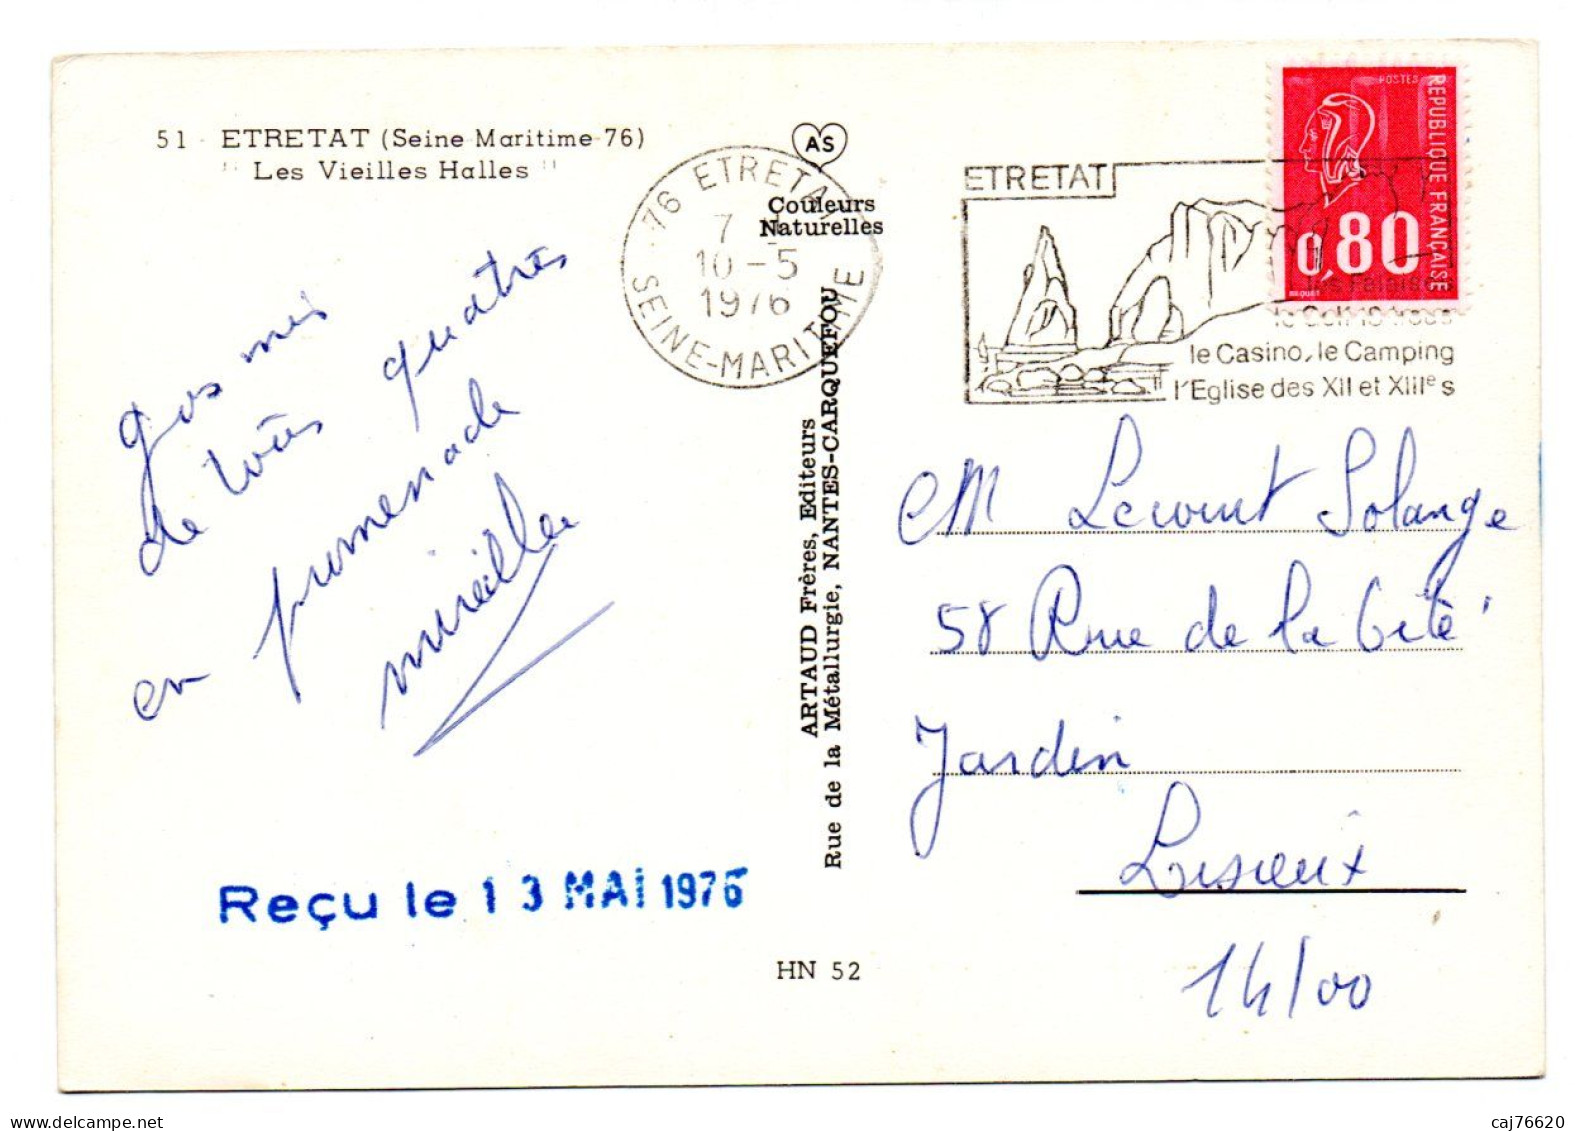 51 - ETRETAT (Seine-Maritime-76)
" Les Vieilles Halles "
AS
Couleurs
Naturelles
76 ETRETAT
7
10-5
1976
SEINE-MARITIME
ETRETAT
les Falaises
le Golf 18 trous
le Casino, le Camping
l'Eglise des XII et XIIIe s
POSTES
REPUBLIQUE FRANÇAISE
0,80
BEQUET
gros
de
quatres
en promenade
mireille
ARTAUD Frères, Editeurs
Rue de la Métallurgie, NANTES-CARQUEFOU
M Solange
58 Rue de la Cité
Jardin
Lisieux
14100
Reçu le 13 MAI 1976
HN 52
www.delcampe.net
caj76620